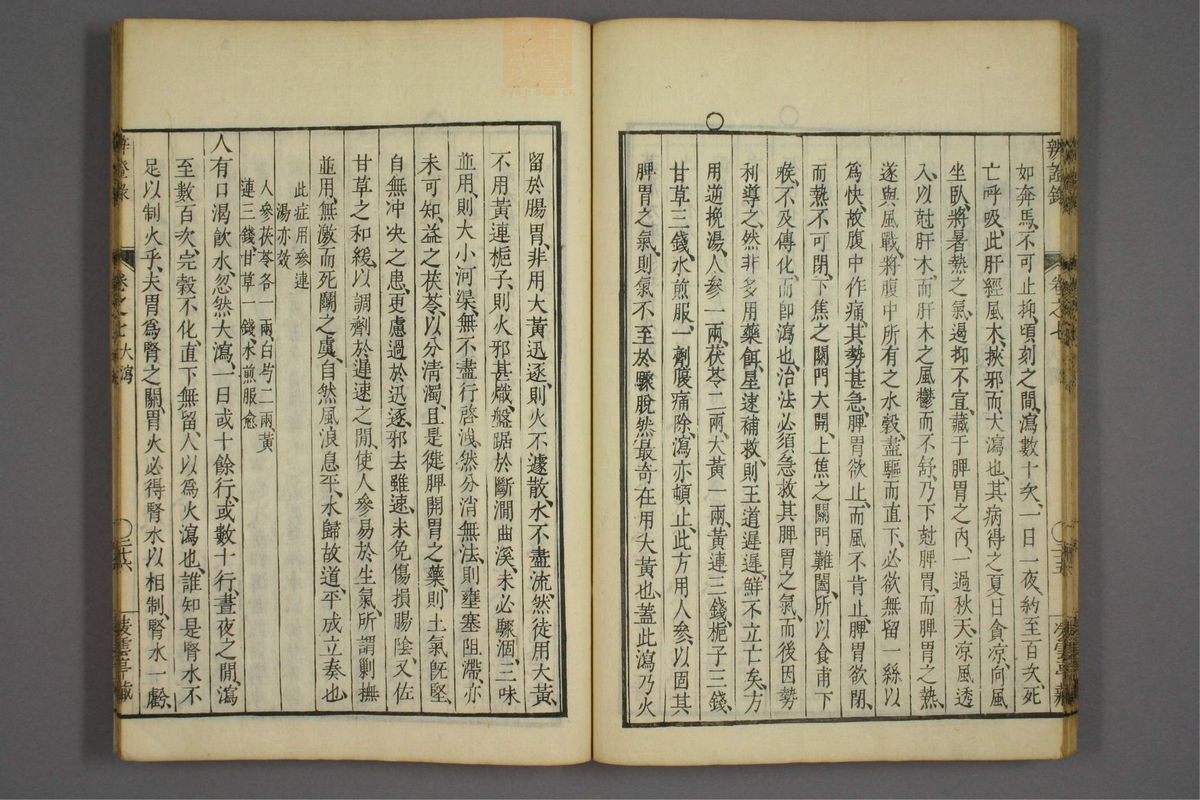 辨證錄 卷之七 三五 凌雲亭藏
如奔馬、不可止抑、頃刻之間、瀉數十次、一日一夜、約至百次、死
亡呼吸、此肝經風木、挾邪而大瀉也、其病得之夏日貪凉、向風
坐臥、將暑熱之氣、遏抑不宣、藏于脾胃之內、一過秋天、凉風透
入、以尅肝木、而肝木之風、鬱而不舒、乃下尅脾胃、而脾胃之熱、
遂與風戰、將腹中所有之水穀、盡驅而直下、必欲無留一絲以
爲快、故腹中作痛、其勢甚急、脾胃欲止、而風不肯止、脾胃欲閉、
而熱不可閉、下焦之關門大開、上焦之關門難闔、所以食甫下
喉、不及傳化、而卽瀉也、治法必須急救其脾胃之氣、而後因勢
利導之、然非多用藥餌、星速補救、則王道遲遲、鮮不立亡矣、方
用逆挽湯、人參一兩、茯苓二兩、大黃一兩、黃連三錢、梔子三錢、
甘草三錢、水煎服、一劑腹痛除、瀉亦頓止、此方用人參、以固其
脾胃之氣、則氣不至於驟脫、然最奇在用大黃也、蓋此瀉乃火
留於腸胃、非用大黃迅逐、則火不遽散、水不盡流、然徒用大黃、
不用黃連梔子、則火邪甚熾、盤踞於斷澗曲溪、未必驟涸、三味
並用、則大小河渠、無不盡行啓洩、然分消無法、則壅塞阻滯、亦
未可知、益之茯苓、以分淸濁、且是健脾開胃之藥、則土氣旣堅、
自無冲决之患、更慮過於迅逐、邪去雖速、未免傷損腸陰、又佐
甘草之和緩、以調劑於遲速之間、使人參易於生氣、所謂剿撫
並用、無激而死鬬之虞、自然風浪息平、水歸故道、平成立奏也
此症用參連
湯亦效
人參茯苓各一兩白芍二兩黃
連三錢甘草一錢水煎服愈
人有口渴飮水、忽然大瀉、一日或十餘行、或數十行、晝夜之間、瀉
至數百次、完穀不化、直下無留、人以爲火瀉也、誰知是腎水不
足以制火乎、夫胃爲腎之關、胃火必得腎水以相制、腎水一虧、
辨證錄 卷之七 大瀉 三六 凌雲亭藏